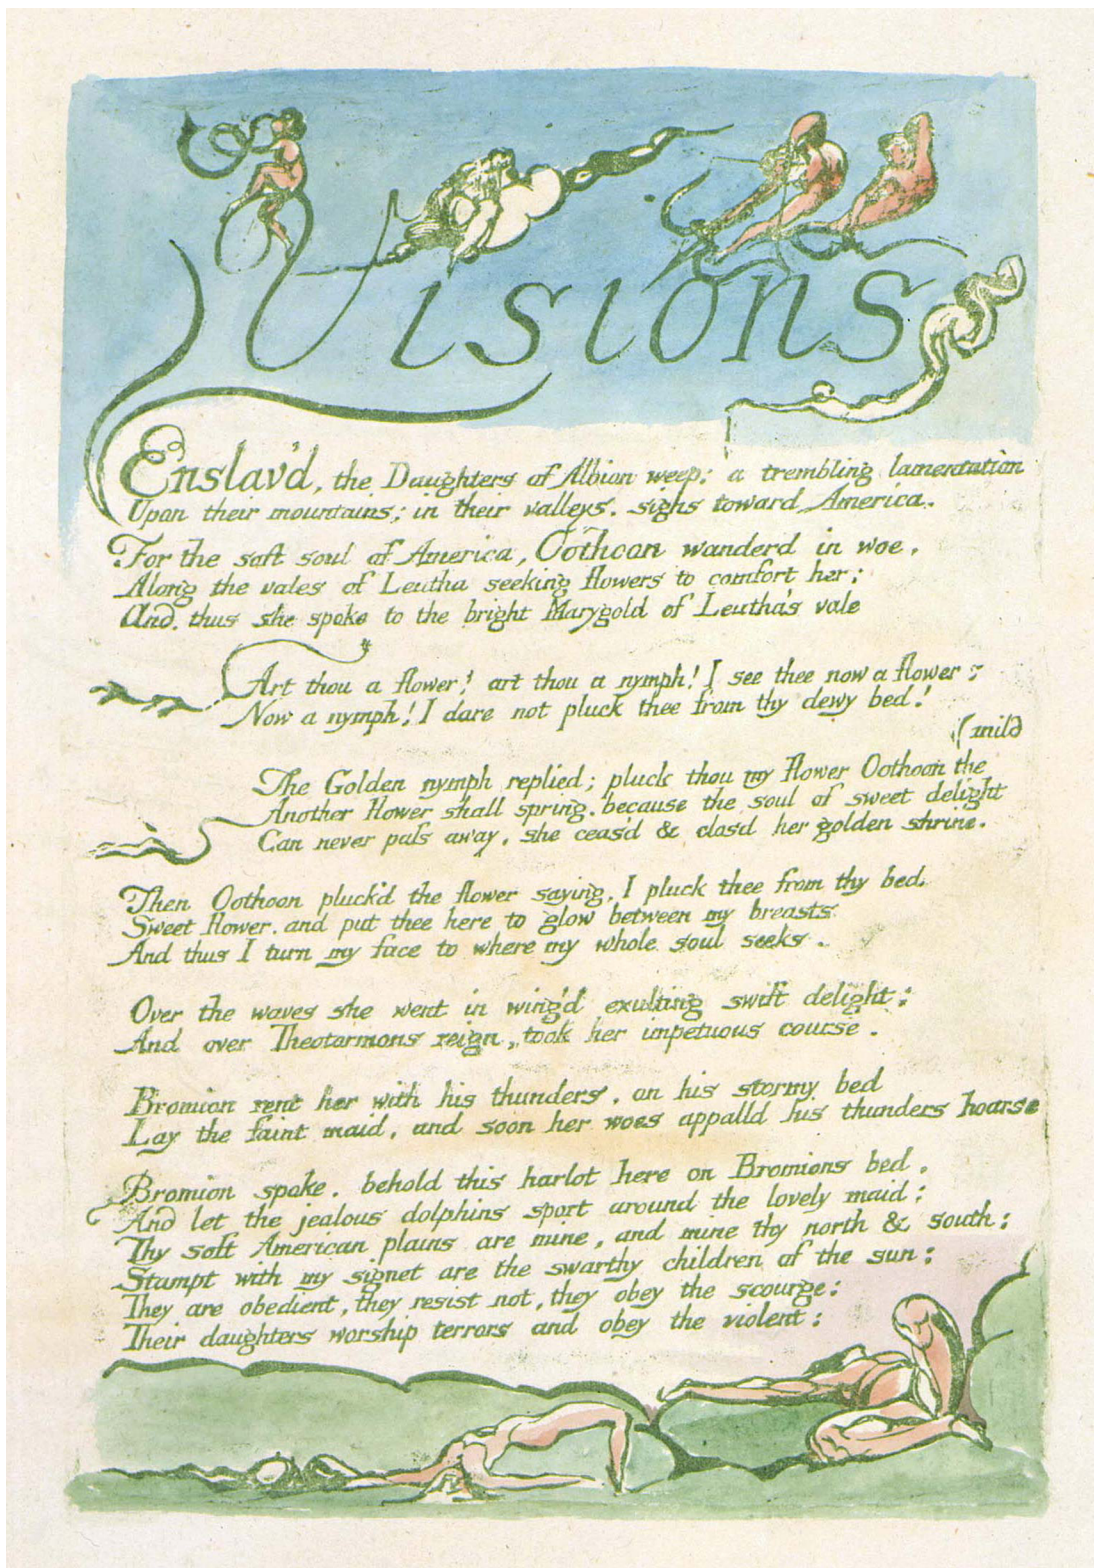 Visions
Enslav'd, the Daughters of Albion weep: a trembling lamentation
Upon their mountains; in their valleys, sighs toward America.
For the soft soul of America, Oothoon wanderd in woe,
Along the vales of Leutha seeking flowers to comfort her;
And thus she spoke to the bright Marygold of Leutha's vale
Art thou a flower! art thou a nymph! I see thee now a flower;
Now a nymph! I dare not pluck thee from thy dewy bed!
The Golden nymph replied; pluck thou my flower Oothoon the (mild
Another flower shall spring, because the soul of sweet delight
Can never pass away. she ceas'd & clos'd her golden shrine.
Then Oothoon pluck'd the flower saying, I pluck thee from thy bed
Sweet flower. and put thee here to glow between my breasts
And thus I turn my face to where my whole soul seeks.
Over the waves she went in wing'd exulting swift delight;
And over Theotormons reign, took her impetuous course.
Bromion rent her with his thunders. on his stormy bed
Lay the faint maid, and soon her woes appalld his thunders hoarse
Bromion spoke. behold this harlot here on Bromions bed,
And let the jealous dolphins sport around the lovely maid;
Thy soft American plains are mine, and mine thy north & south:
Stampt with my signet are the swarthy children of the sun:
They are obedient, they resist not, they obey the scourge:
Their daughters worship terrors and obey the violent: